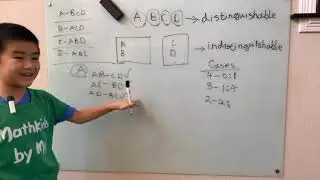 A-BCD
B-ACD
C-ABD
D-ABC
A, B, C, D → distinguishable
A
B
C
D
→ indistinguishable
A
AB-CD✓
AC-BD
AD-BC✓
Cases
4-0:1
3-1:4
2-2:
Mathkids
by M